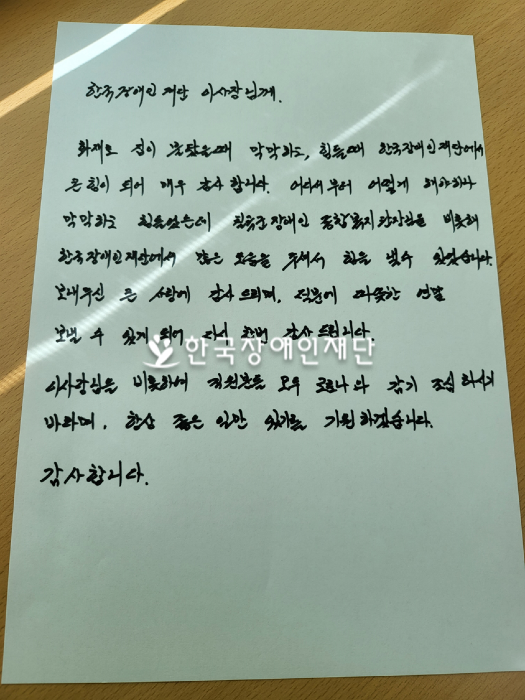 한국장애인 재단 이사장님께.
화재로 집이 불탔을때 막막하고, 힘들때 한국장애인재단에서
큰 힘이 되어 매우 감사합니다. 어디서부터 어떻게 해야하나
막막하고 힘들었는데 칠곡군장애인 종합복지관장님을 비롯해
한국장애인재단에서 많은 도움을 주셔서 힘을 낼수 있었습니다.
보내주신 큰 사랑에 감사드리며, 덕분에 따뜻한 연말
보낼 수 있게 되어 다시 한번 감사드립니다.
한국장애인재단
이사장님을 비롯하여 직원분들 모두 코로나와 감기 조심하시기
바라며, 항상 좋은 일만 있기를 기원하겠습니다.
감사합니다.